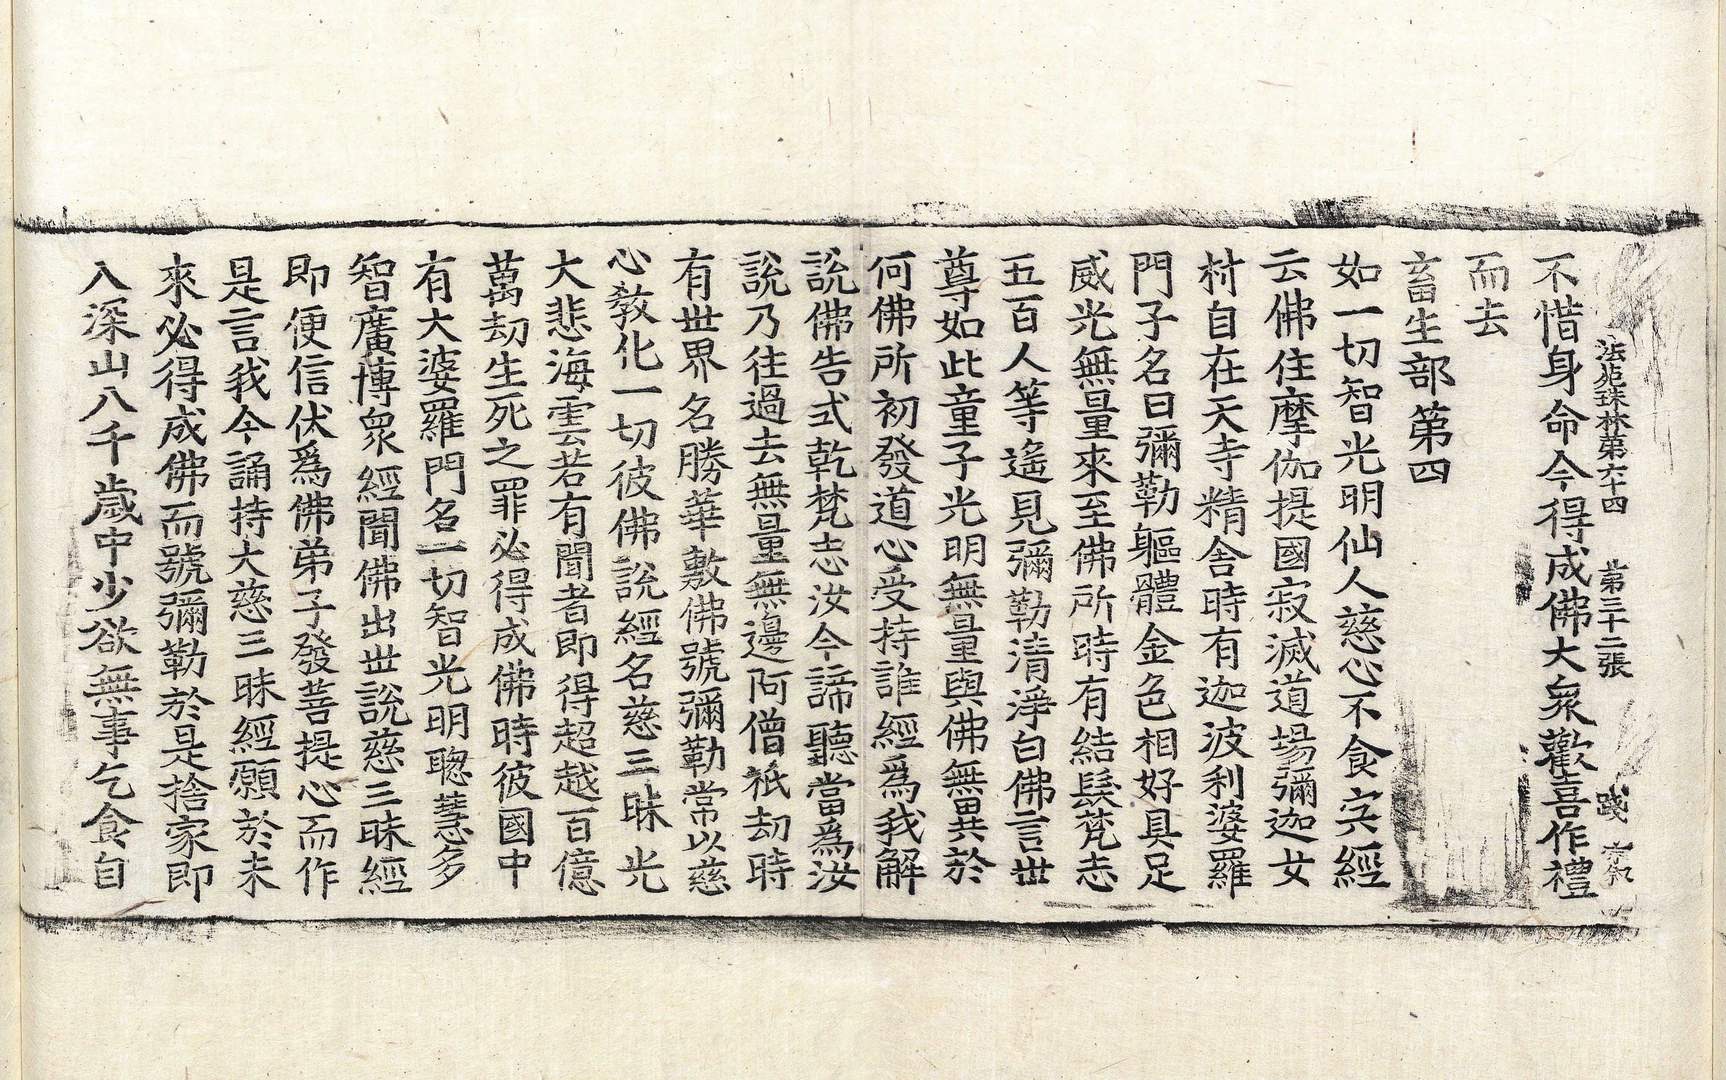 法苑珠林第六十四　第三十二張　踐
不惜身命今得成佛大衆歡喜作禮
而去
畜生部第四
如一切智光明仙人慈心不食宍經
云佛住摩伽提國寂滅道場彌迦女
村自在天寺精舍時有迦波利婆羅
門子名曰彌勒軀體金色相好具足
威光無量來至佛所時有結髮梵志
五百人等遙見彌勒清淨白佛言世
尊如此童子光明無量與佛無異於
何佛所初發道心受持誰經爲我解
說佛告式乾梵志汝今諦聽當爲汝
說乃往過去無量無邊阿僧祇劫時
有世界名勝華敷佛號彌勒常以慈
心敎化一切彼佛說經名慈三昧光
大悲海雲若有聞者即得超越百億
萬劫生死之罪必得成佛時彼國中
有大婆羅門名一切智光明聰慧多
智廣博衆經聞佛出世說慈三昧經
即便信伏爲佛弟子發菩提心而作
是言我今誦持大慈三昧經願於未
來必得成佛而號彌勒於是捨家即
入深山八千歲中少欲無事乞食自